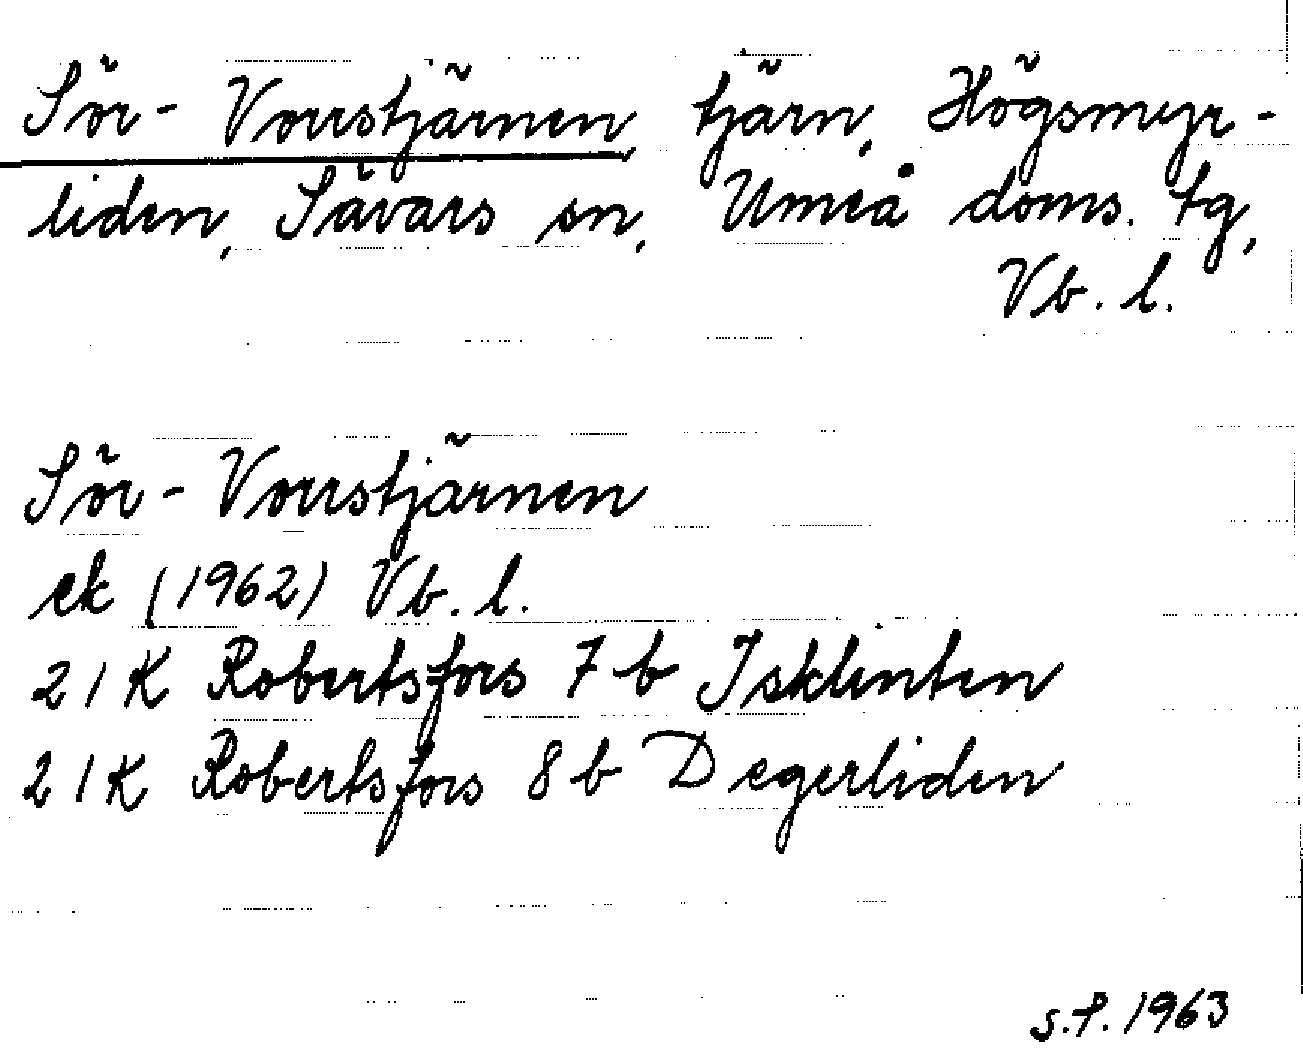 Sör-Vorrstjärnen, tjärn, Högsmyr-
liden, Sävars sn, Umeå doms. tg,
Vb. l.
Sör-Vorrstjärnen
ek (1962) Vb. l.
21K Robertsfors 7b Isklinten
21K Robertsfors 8b Degerliden
s.f. 1963